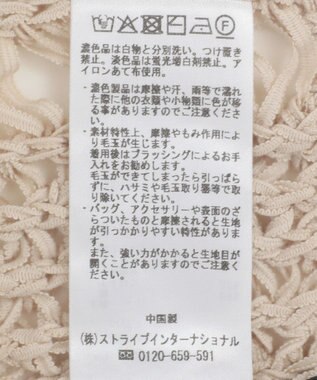 濃色品は白物と分別洗い。つけ置き
禁止。淡色品は蛍光増白剤禁止。ア
イロンあて布使用。
・濃色製品は摩擦や汗、雨等で濡れ
た際に他の衣類や小物類に色が移
る事がありますのでご注意くださ
い。
・素材特性上、摩擦やもみ作用によ
り毛玉が生じます。
着用後はブラッシングによるお手
入れをお勧めします。
毛玉ができてしまったら引っぱら
ずに、ハサミや毛玉取り器等で取
り除いてください。
・バッグ、アクセサリーや表面のざ
らついたものと摩擦されると生地
が引っかかりやすい特性がありま
す。
また、強い力がかかると生地目が
開くことがありますのでご注意く
ださい。
中国製
(株)ストライプインターナショナル
0120-659-591